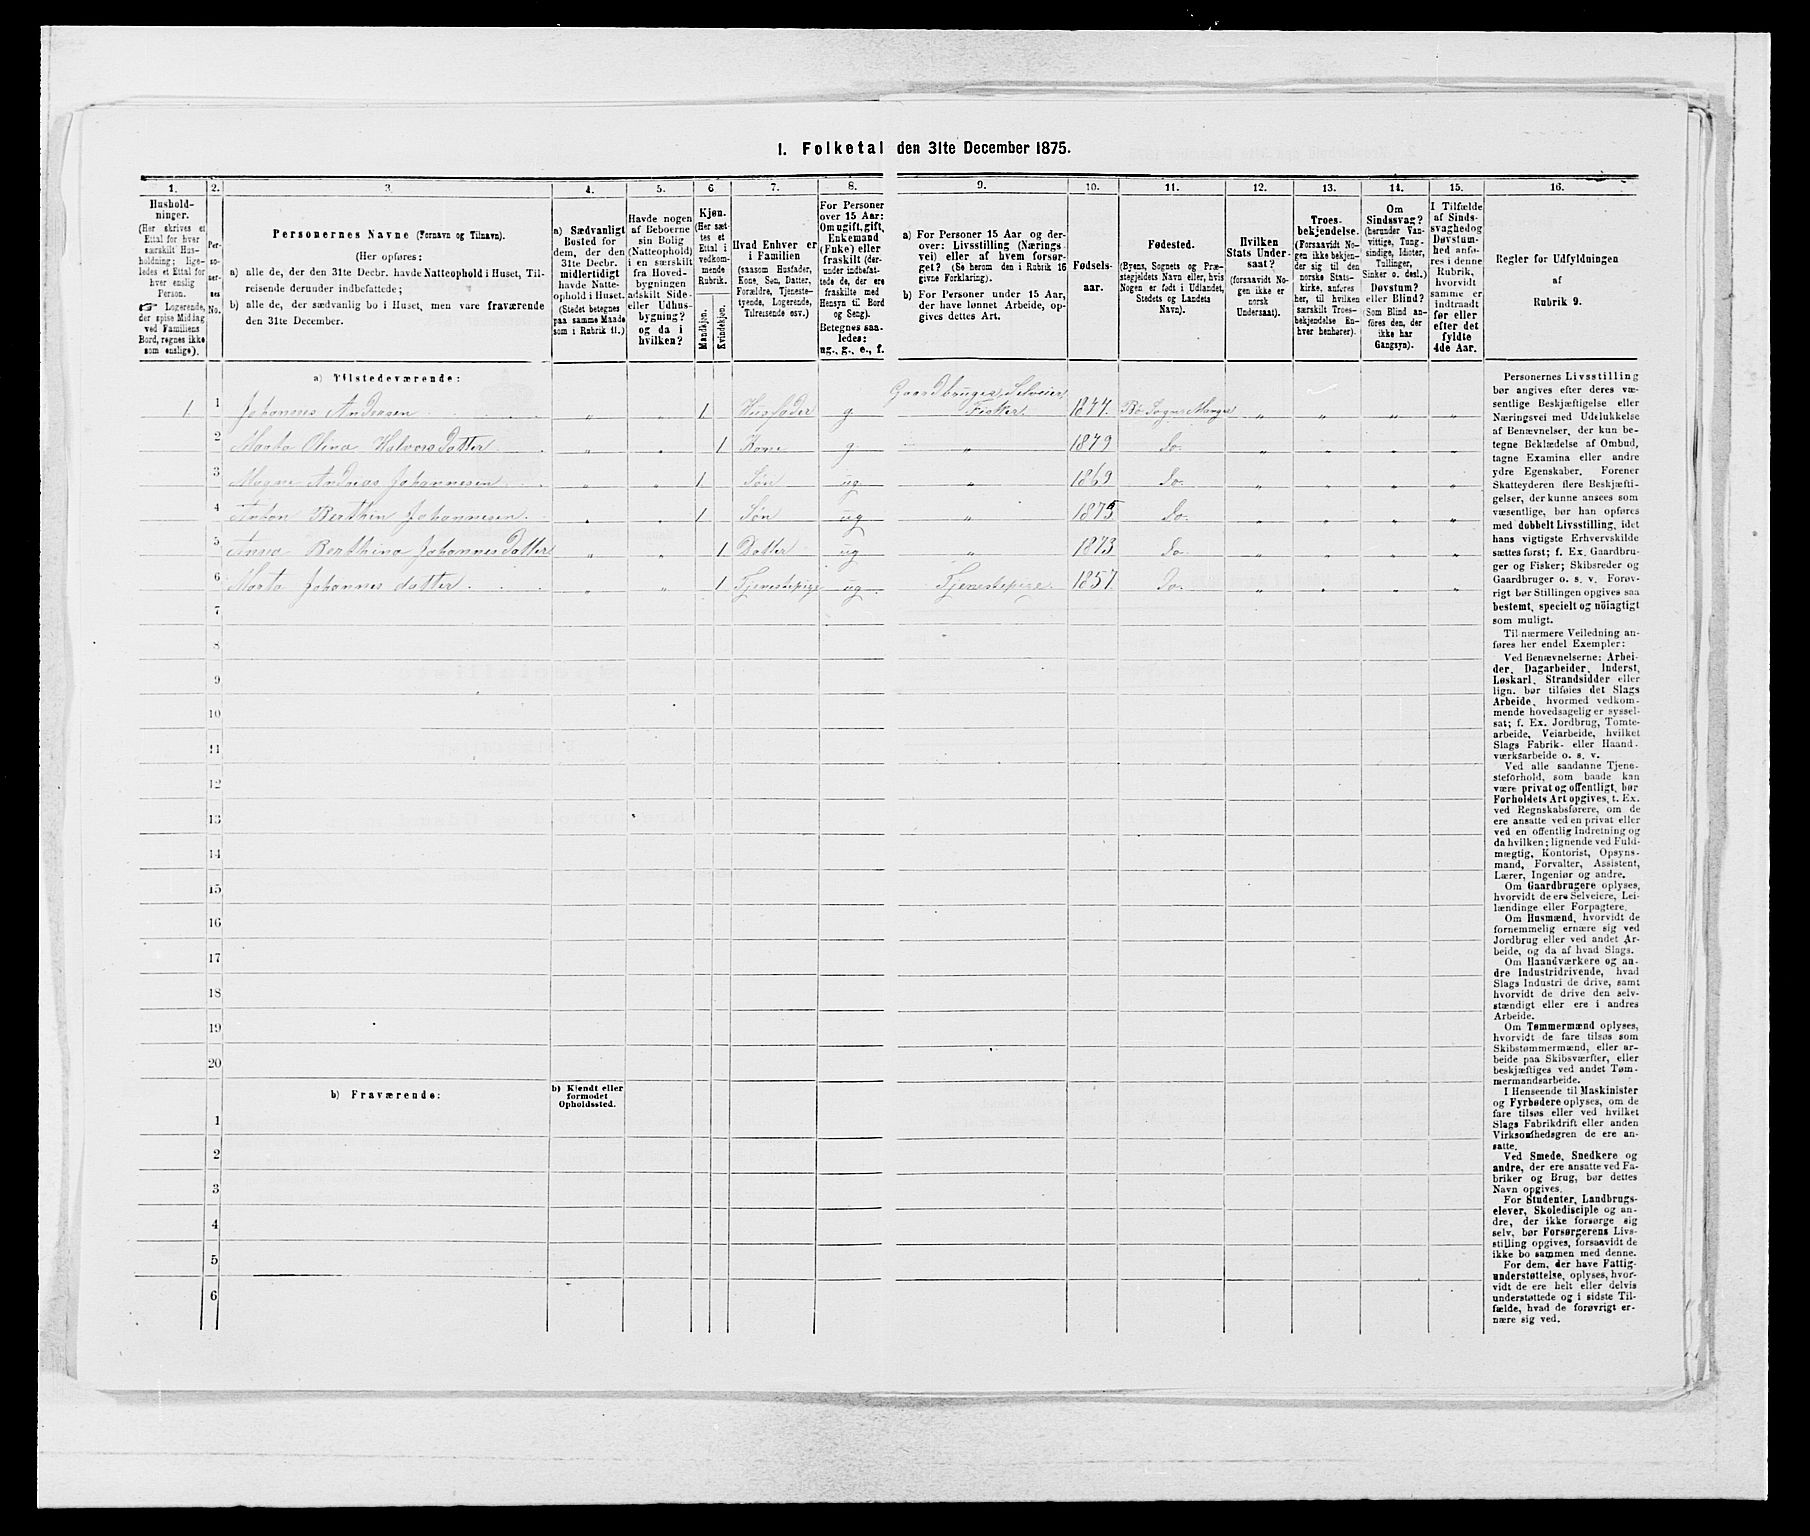 I. Folketal den 31te December 1875.
1. 2. 3. 4. 5. 6 7. 8. 9. 10. 11. 12. 13. 14. 15. 16.
Hushold-
ninger.
(Her skrives et
Ettal for hver
særskilt Hus-
holdning; lige-
ledes et Ettal for
hver enslig
Person.
☞ Logerende,
der spise Middag
ved Familiens
Bord, regnes ikke
som enslige).
Per-
so-
ner-
nes
No.
Personernes Navne (Fornavn og Tilnavn).
(Her opføres:
a) alle de, der den 31te Decbr. havde Natteophold i Huset, Til-
reisende derunder indbefattede;
b) alle de, der sædvanlig bo i Huset, men vare fraværende
den 31te December.
a) Sædvanligt
Bosted for
dem, der den
31te Decbr.
midlertidigt
havde Natte-
ophold i Huset.
(Stedet betegnes
paa samme Maade
som i Rubrik 11.)
Havde nogen
af Beboerne
sin Bolig
(Natteophold)
i en særskilt
fra Hoved-
bygningen
adskilt Side-
eller Udhus-
bygning?
og da i
hvilken?
Kjøn.
(Her sæt-
tes et
Ettal i
vedkom-
mende
Rubrik.
Mandkjøn.
Kvindekjøn.
Hvad Enhver er
i Familien
(saasom Husfader,
Kone, Søn, Datter,
Forældre, Tjeneste-
tyende, Logerende,
Tilreisende osv.)
For Personer
over 15 Aar:
Om ugift, gift,
Enkemand
(Enke) eller
fraskilt (der-
under indbefat-
tede de, der ere
fraskilte med
Hensyn til Bord
og Seng).
Betegnes saa-
ledes:
ug., g., e., f.
a) For Personer 15 Aar og der-
over: Livsstilling (Nærings-
vei) eller af hvem forsør-
get? (Se herom den i Rubrik 16
givne Forklaring).
b) For Personer under 15 Aar,
der have lønnet Arbeide, op-
gives dettes Art.
Fødsels-
aar.
Fødested.
(Byens, Sognets og Præ-
stegjeldets Navn eller, hvis
Nogen er født i Udlandet,
Stedets og Landets
Navn).
Hvilken
Stats Under-
saat?
(forsaavidt No-
gen ikke er
norsk
Undersaat).
Troes-
bekjendelse.
(Forsaavidt No-
gen ikke bekjen-
der sig til den
norske Stats-
kirke, anføres
her, til hvilken
særskilt Troes-
bekjendelse En-
hver henhører).
Om
Sindssvag?
(herunder Van-
vittige, Tung-
sindige, Idioter,
Tullinger,
Sinker o. desl.)
Døvstum?
eller Blind?
(Som Blind an-
føres den, der
ikke har
Gangsyn).
I Tilfælde
af Sinds-
svaghed og
Døvstum-
hed anfø-
res i denne
Rubrik,
hvorvidt
samme er
indtraadt
før eller
efter det
fyldte
4de Aar.
Regler for Udfyldningen
af
Rubrik 9.
a) Tilstedeværende:
1 1 Johannes Andersen „ „ 1 Husfader g Gaardbruger, Selveier Fisker 1847. Bø Sogn Manger „ „ „ „
2 Marta Olina Halvorsdatter „ „ 1 Kone g „ 1849 Do. „ „ „ „
3 Mogne Andreas Johannesen „ „ 1 Søn ug „ 1869 Do. „ „ „ „
4 Anton Berthin Johannesen „ „ 1 Søn ug „ 1875 Do. „ „ „ „
5 Anna Berthina Johannesdatter „ „ 1 Datter ug „ 1873 Do. „ „ „ „
6 Marta Johannesdatter „ „ 1 Tjenestepige ug Tjenestepige. 1857. Do. „ „ „ „
7
8
9
10
11
12
13
14
15
16
17
18
19
20
b) Fraværende:
b) Kjendt eller
formodet
Opholdssted.
1
2
3
4
5
6
Personernes Livsstilling
bør angives efter deres væ-
sentlige Beskjæftigelse eller
Næringsvei med Udelukkelse
af Benævnelser, der kun be-
tegne Beklædelse af Ombud,
tagne Examina eller andre
ydre Egenskaber. Forener
Skatteyderen flere Beskjæfti-
gelser, der kunne ansees som
væsentlige, bør han opføres
med dobbelt Livsstilling, idet
hans vigtigste Erhvervskilde
sættes først; f. Ex. Gaardbru-
ger og Fisker; Skibsreder og
Gaardbruger o. s. v. Forøv-
rigt bør Stillingen opgives saa
bestemt, specielt og nöiagtigt
som muligt.
Til nærmere Veiledning an-
føres her endel Exempler:
Ved Benævnelserne: Arbei-
der, Dagarbeider, Inderst,
Løskarl, Strandsidder eller
lign. bør tilføies det Slags
Arbeide, hvormed vedkom-
mende hovedsagelig er syssel-
sat; f. Ex. Jordbrug, Tomte-
arbeide, Veiarbeide, hvilket
Slags Fabrik- eller Haand-
værksarbeide o. s. v.
Ved alle saadanne Tjene-
steforhold, som baade kan
være privat og offentligt, bør
Forholdets Art opgives, t. Ex.
ved Regnskabsførere, om de
ere ansatte ved en privat eller
ved en offentlig Indretning og
da hvilken; lignende ved Fuld-
mægtig, Kontorist, Opsyns-
mand, Forvalter, Assistent,
Lærer, Ingeniør og andre.
Om Gaardbrugere oplyses,
hvorvidt de ere Selveiere, Lei-
lændinge eller Forpagtere.
Om Husmænd, hvorvidt de
fornemmelig ernære sig ved
Jordbrug eller ved andet Ar-
beide, og da af hvad Slags.
Om Haandværkere og an-
dre Industridrivende, hvad
Slags Industri de drive, samt
hvorvidt de drive den selv-
stændigt eller ere i andres
Arbeide.
Om Tømmermænd oplyses,
hvorvidt de fare tilsøs som
Skibstømmermænd, eller ar-
beide paa Skibsværfter, eller
beskjæftiges ved andet Tøm-
mermandsarbeide.
I Henseende til Maskinister
og Fyrbødere oplyses, om de
fare tilsøs eller ved hvilket
Slags Fabrikdrift eller anden
Virksomhedsgren de ere an-
satte.
Ved Smede, Snedkere og
andre, der ere ansatte ved Fa-
briker og Brug, bør dettes
Navn opgives.
For Studenter, Landbrugs-
elever, Skoledisciple og an-
dre, der ikke forsørge sig
selv, bør Forsørgerens Livs-
stilling opgives, forsaavidt de
ikke bo sammen med denne.
For dem, der have Fattig-
understøttelse, oplyses, hvor-
vidt de ere helt eller delvis
understøttede og i sidste Til-
fælde, hvad de forøvrigt er-
nære sig ved.